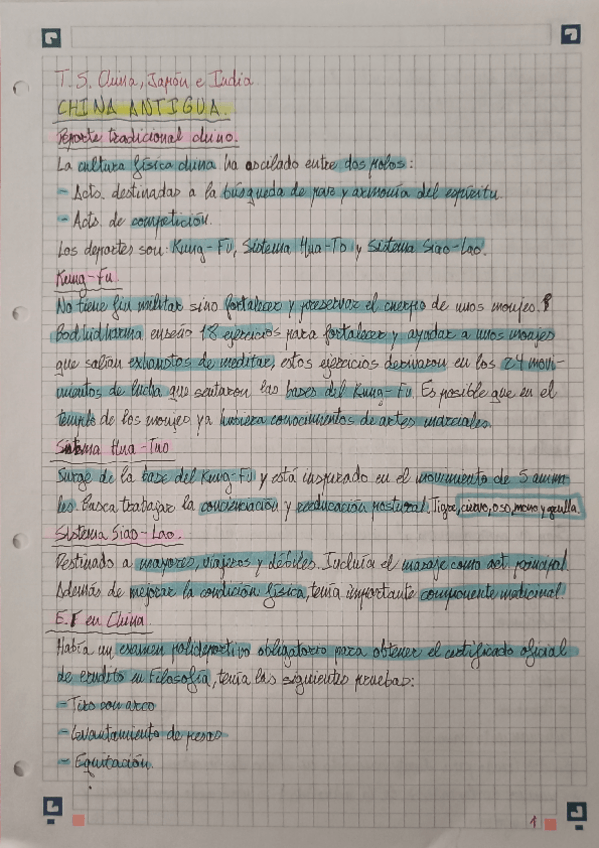 T.5. China, Japón e India
CHINA ANTIGUA.
Deporte tradicional chino.
La cultura física china ha oscilado entre dos polos:
- Acto. destinadas a la búsqueda de paz y armonía del espíritu.
- Acto. de competición.
Los deportes son: Kung-Fu, Sistema Hua-To y Sistema Siao-Lao.
Kung-Fu
No tiene fin militar sino fortalecer y preservar el cuerpo de unos monjes.
Bodhidharma enseñó 18 ejercicios para fortalecer y ayudar a unos monjes
que salían exhaustos de meditar, estos ejercicios derivaron en los 24 movi-
mientos de lucha que sentaron las bases del Kung-Fu. Es posible que en el
templo de los monjes ya hubiera conocimientos de artes marciales.
Sistema Hua-Tuo
Surge de la base del Kung-Fu y está inspirado en el movimiento de 5 anima
les. Busca trabajar la concienciación y reeducación postural. Tigre, ciervo, oso, mono y grulla.
Sistema Siao-Lao.
Destinado a mayores, viajeros y débiles. Incluía el masaje como act. principal.
Además de mejorar la condición física, tenía importante componente medicinal.
E.F en China
Había un examen polideportivo obligatorio para obtener el certificado oficial
de erudito en Filosofía, tenía las siguientes pruebas:
- Tiro con arco
- Levantamiento de pesas
- Equitación.
1